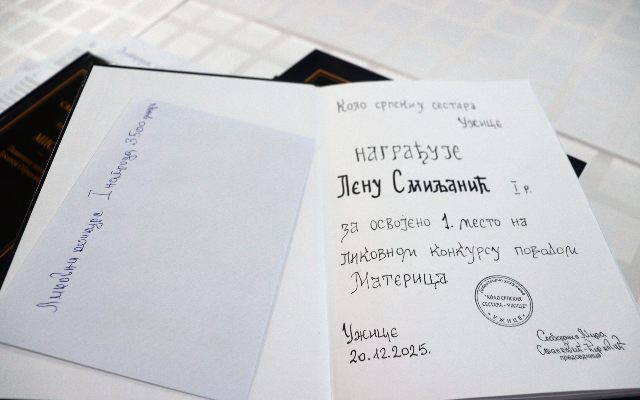 Ликовни конкурс I награда 3.500 динара
Коло српских сестара
Ужице
награђује
Лену Смиљанић I р.
за освојено 1. место на
ликовном конкурсу поводом
Материца
"КОЛО СРПСКИХ
СЕСТАРА - УЖИЦЕ"
УЖИЦЕ
Ужице
20.12.2025.
председница